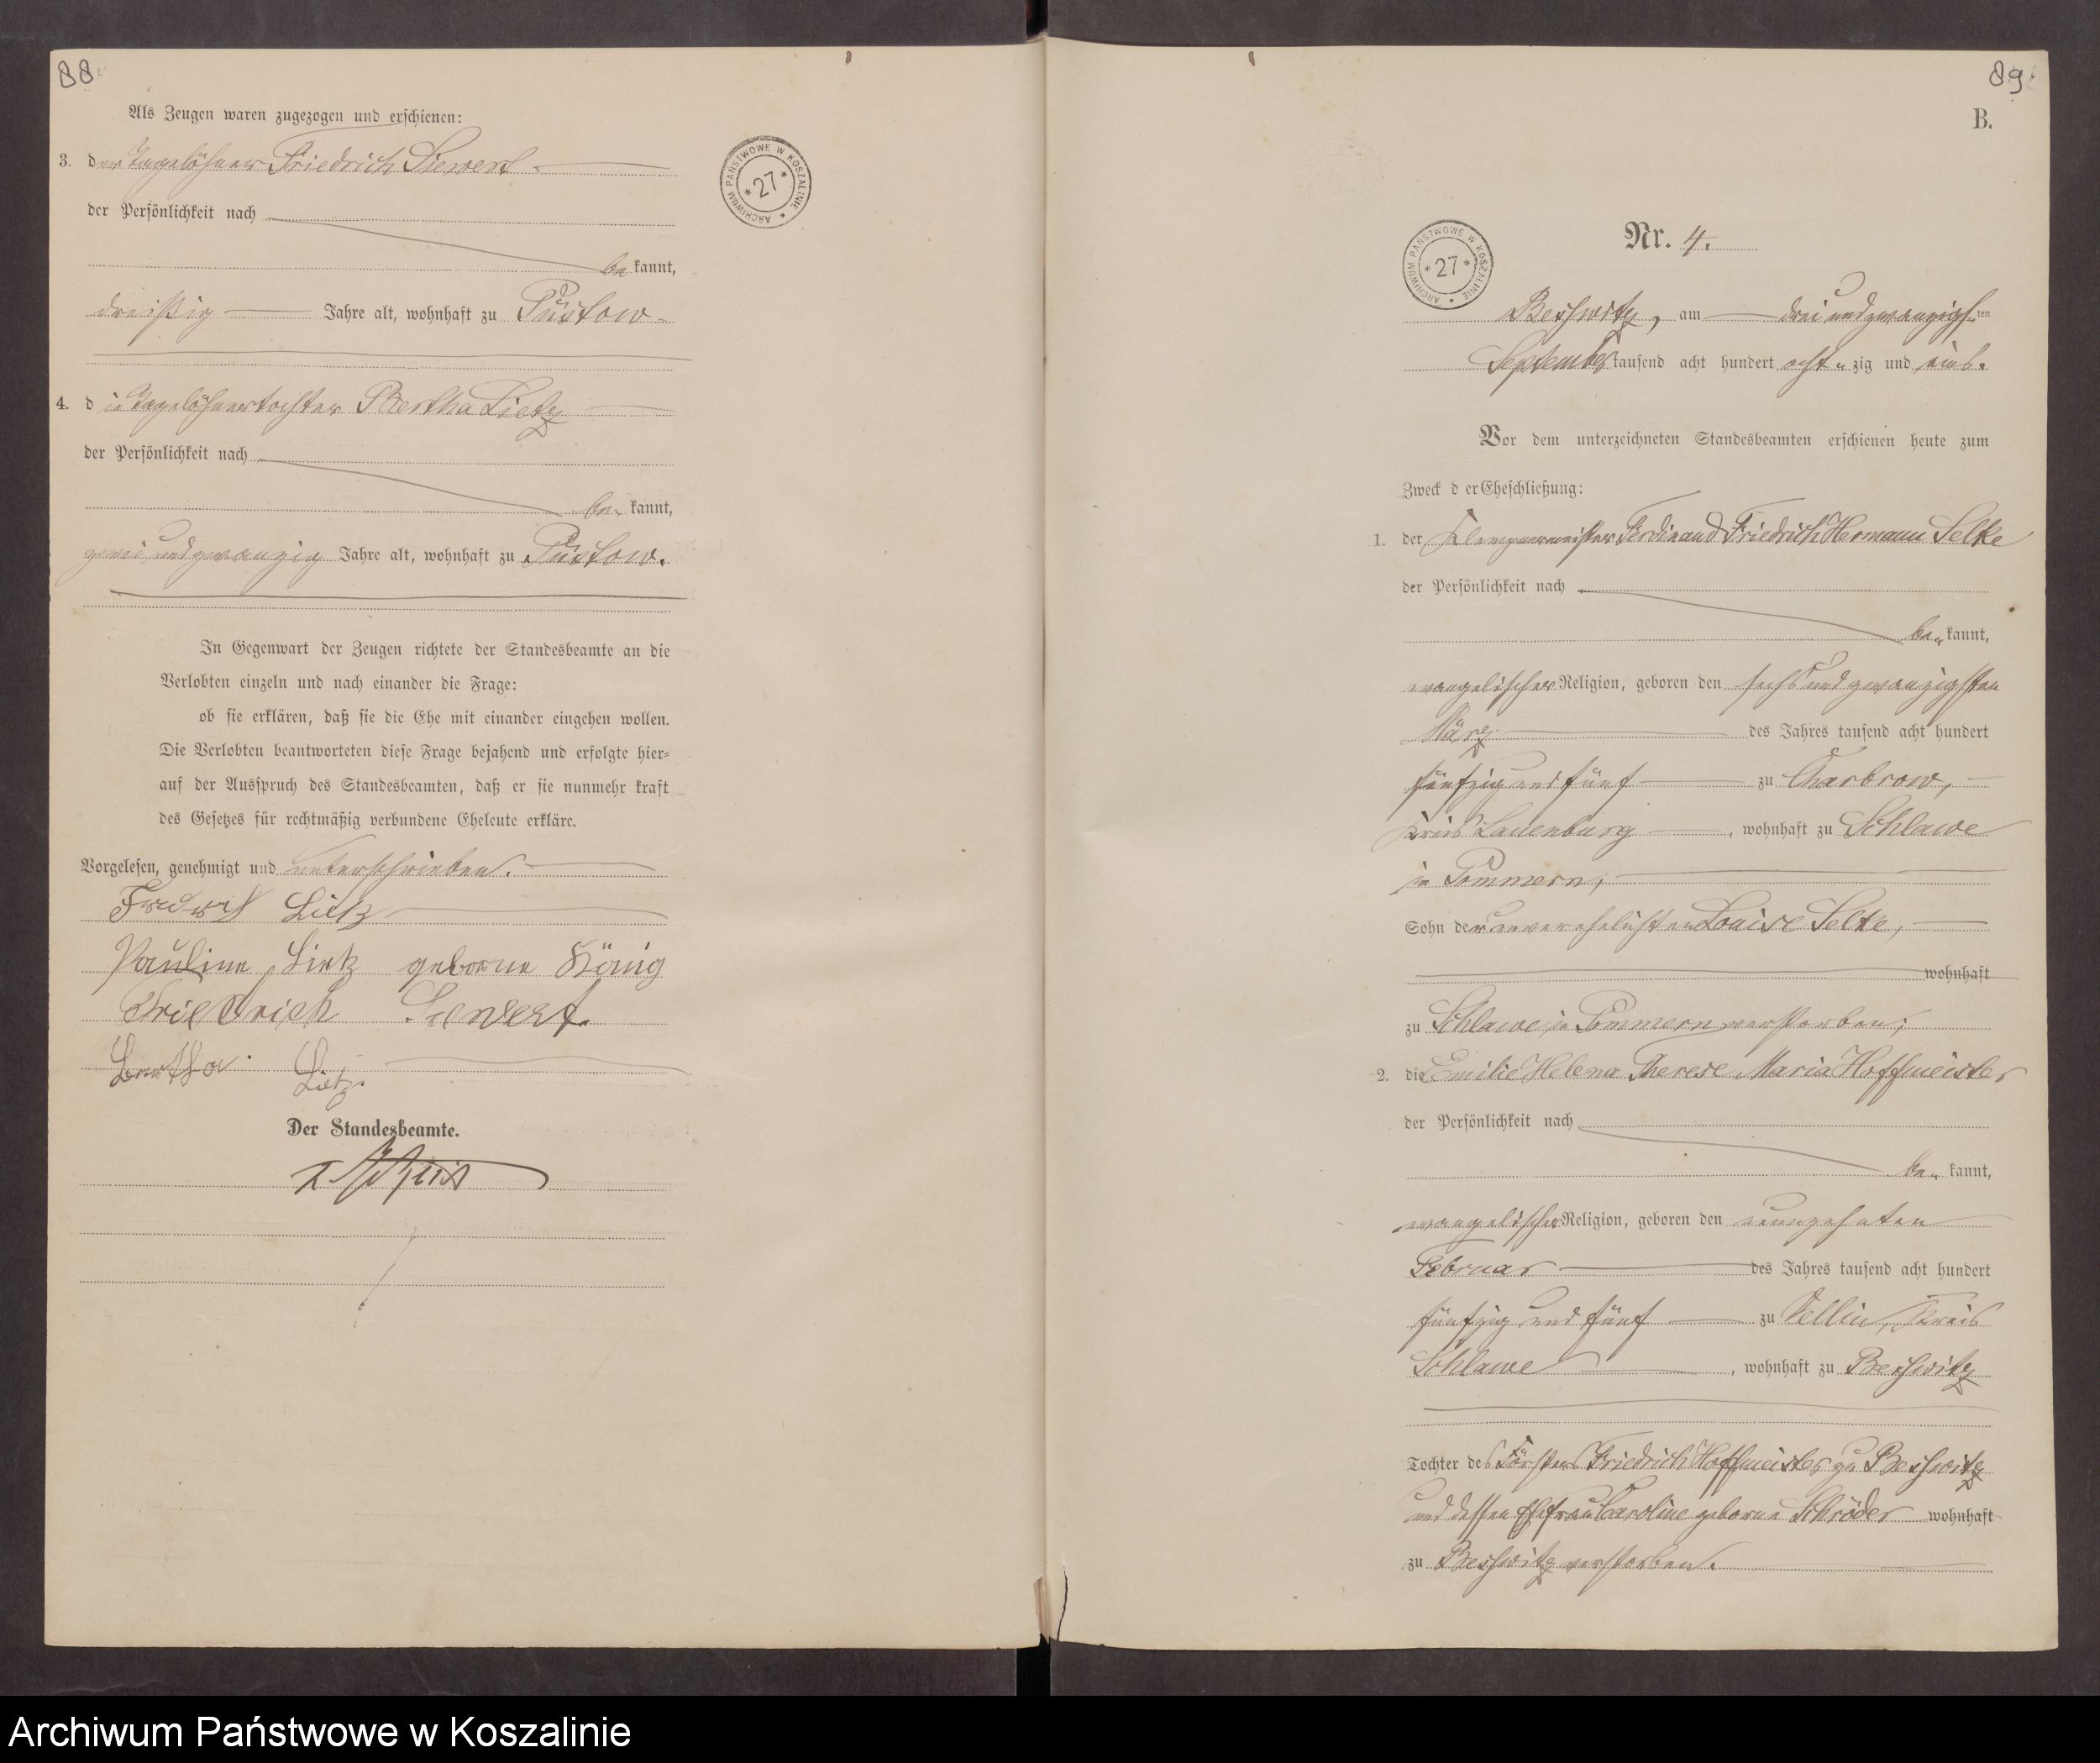 88
Als Zeugen waren zugezogen und erschienen:
3. der Tagelöhner Friedrich Siewert
der Persönlichkeit nach
bekannt,
dreißig Jahre alt, wohnhaft zu Püstow
4. die Tagelöhnertochter Bertha Lietz
der Persönlichkeit nach
bekannt,
zwei und zwanzig Jahre alt, wohnhaft zu Püstow.
In Gegenwart der Zeugen richtete der Standesbeamte an die
Verlobten einzeln und nach einander die Frage:
ob sie erklären, daß sie die Ehe mit einander eingehen wollen.
Die Verlobten beantworteten diese Frage bejahend und erfolgte hier-
auf der Ausspruch des Standesbeamten, daß er sie nunmehr kraft
des Gesetzes für rechtmäßig verbundene Eheleute erkläre.
Vorgelesen, genehmigt und unterschrieben.
Lietz
Pauline Lietz geborne König
Friedrich Siewert.
Bertha Lietz.
Der Standesbeamte.
ARCHIWUM PAŃSTWOWE W KOSZALINIE
* 27 *
89
B.
ARCHIWUM PAŃSTWOWE W KOSZALINIE
* 27 *
Nr. 4.
Beßwitz, am drei und zwanzigsten
September tausend acht hundert acht zig und eins.
Vor dem unterzeichneten Standesbeamten erschienen heute zum
Zweck der Eheschließung:
1. der Klempnermeister Ferdinand Friedrich Hermann Selke
der Persönlichkeit nach
bekannt,
evangelischer Religion, geboren den sechs und zwanzigsten
März des Jahres tausend acht hundert
fünfzig und fünf zu Charbrow,
Kreis Lauenburg, wohnhaft zu Schlawe
in Pommern,
Sohn der unverehelichten Louise Selke,
wohnhaft
zu Schlawe in Pommern verstorben;
2. die Emilie Helena Therese Maria Hoffmeister
der Persönlichkeit nach
bekannt,
evangelischer Religion, geboren den neunzehnten
Februar des Jahres tausend acht hundert
fünfzig und fünf zu Vellin, Kreis
Schlawe, wohnhaft zu Beßwitz
Tochter des Försters Friedrich Hoffmeister zu Beßwitz
und dessen Ehefrau Caroline geborne Schröder wohnhaft
zu Beßwitz verstorben.
Archiwum Państwowe w Koszalinie